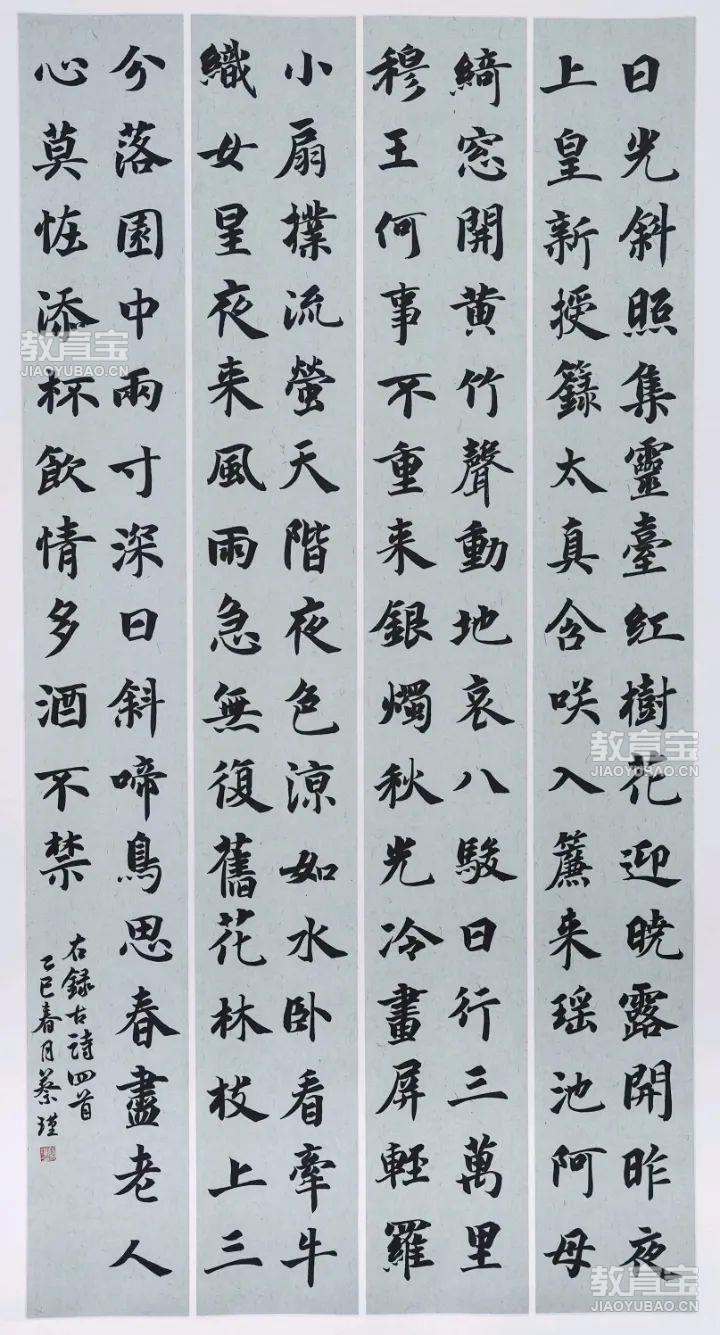 日光斜照集靈臺紅樹花迎暁露開昨夜
上皇新授籙太真含咲入簾来瑶池阿母
綺窓開黄竹聲動地哀八駿日行三萬里
穆王何事不重来銀燭秋光冷畫屏輕羅
小扇撲流螢天階夜色涼如水卧看牽牛
織女星夜来風雨急無復舊花林枝上三
分落園中兩寸深日斜啼鳥思春盡老人
心莫恠添杯飲情多酒不禁
右録古詩四首
乙巳春月蔡瑾
教育宝
JIAOYUBAO.CN
教育宝
JIAOYUBAO.CN
教育宝
JIAOYUBAO.CN